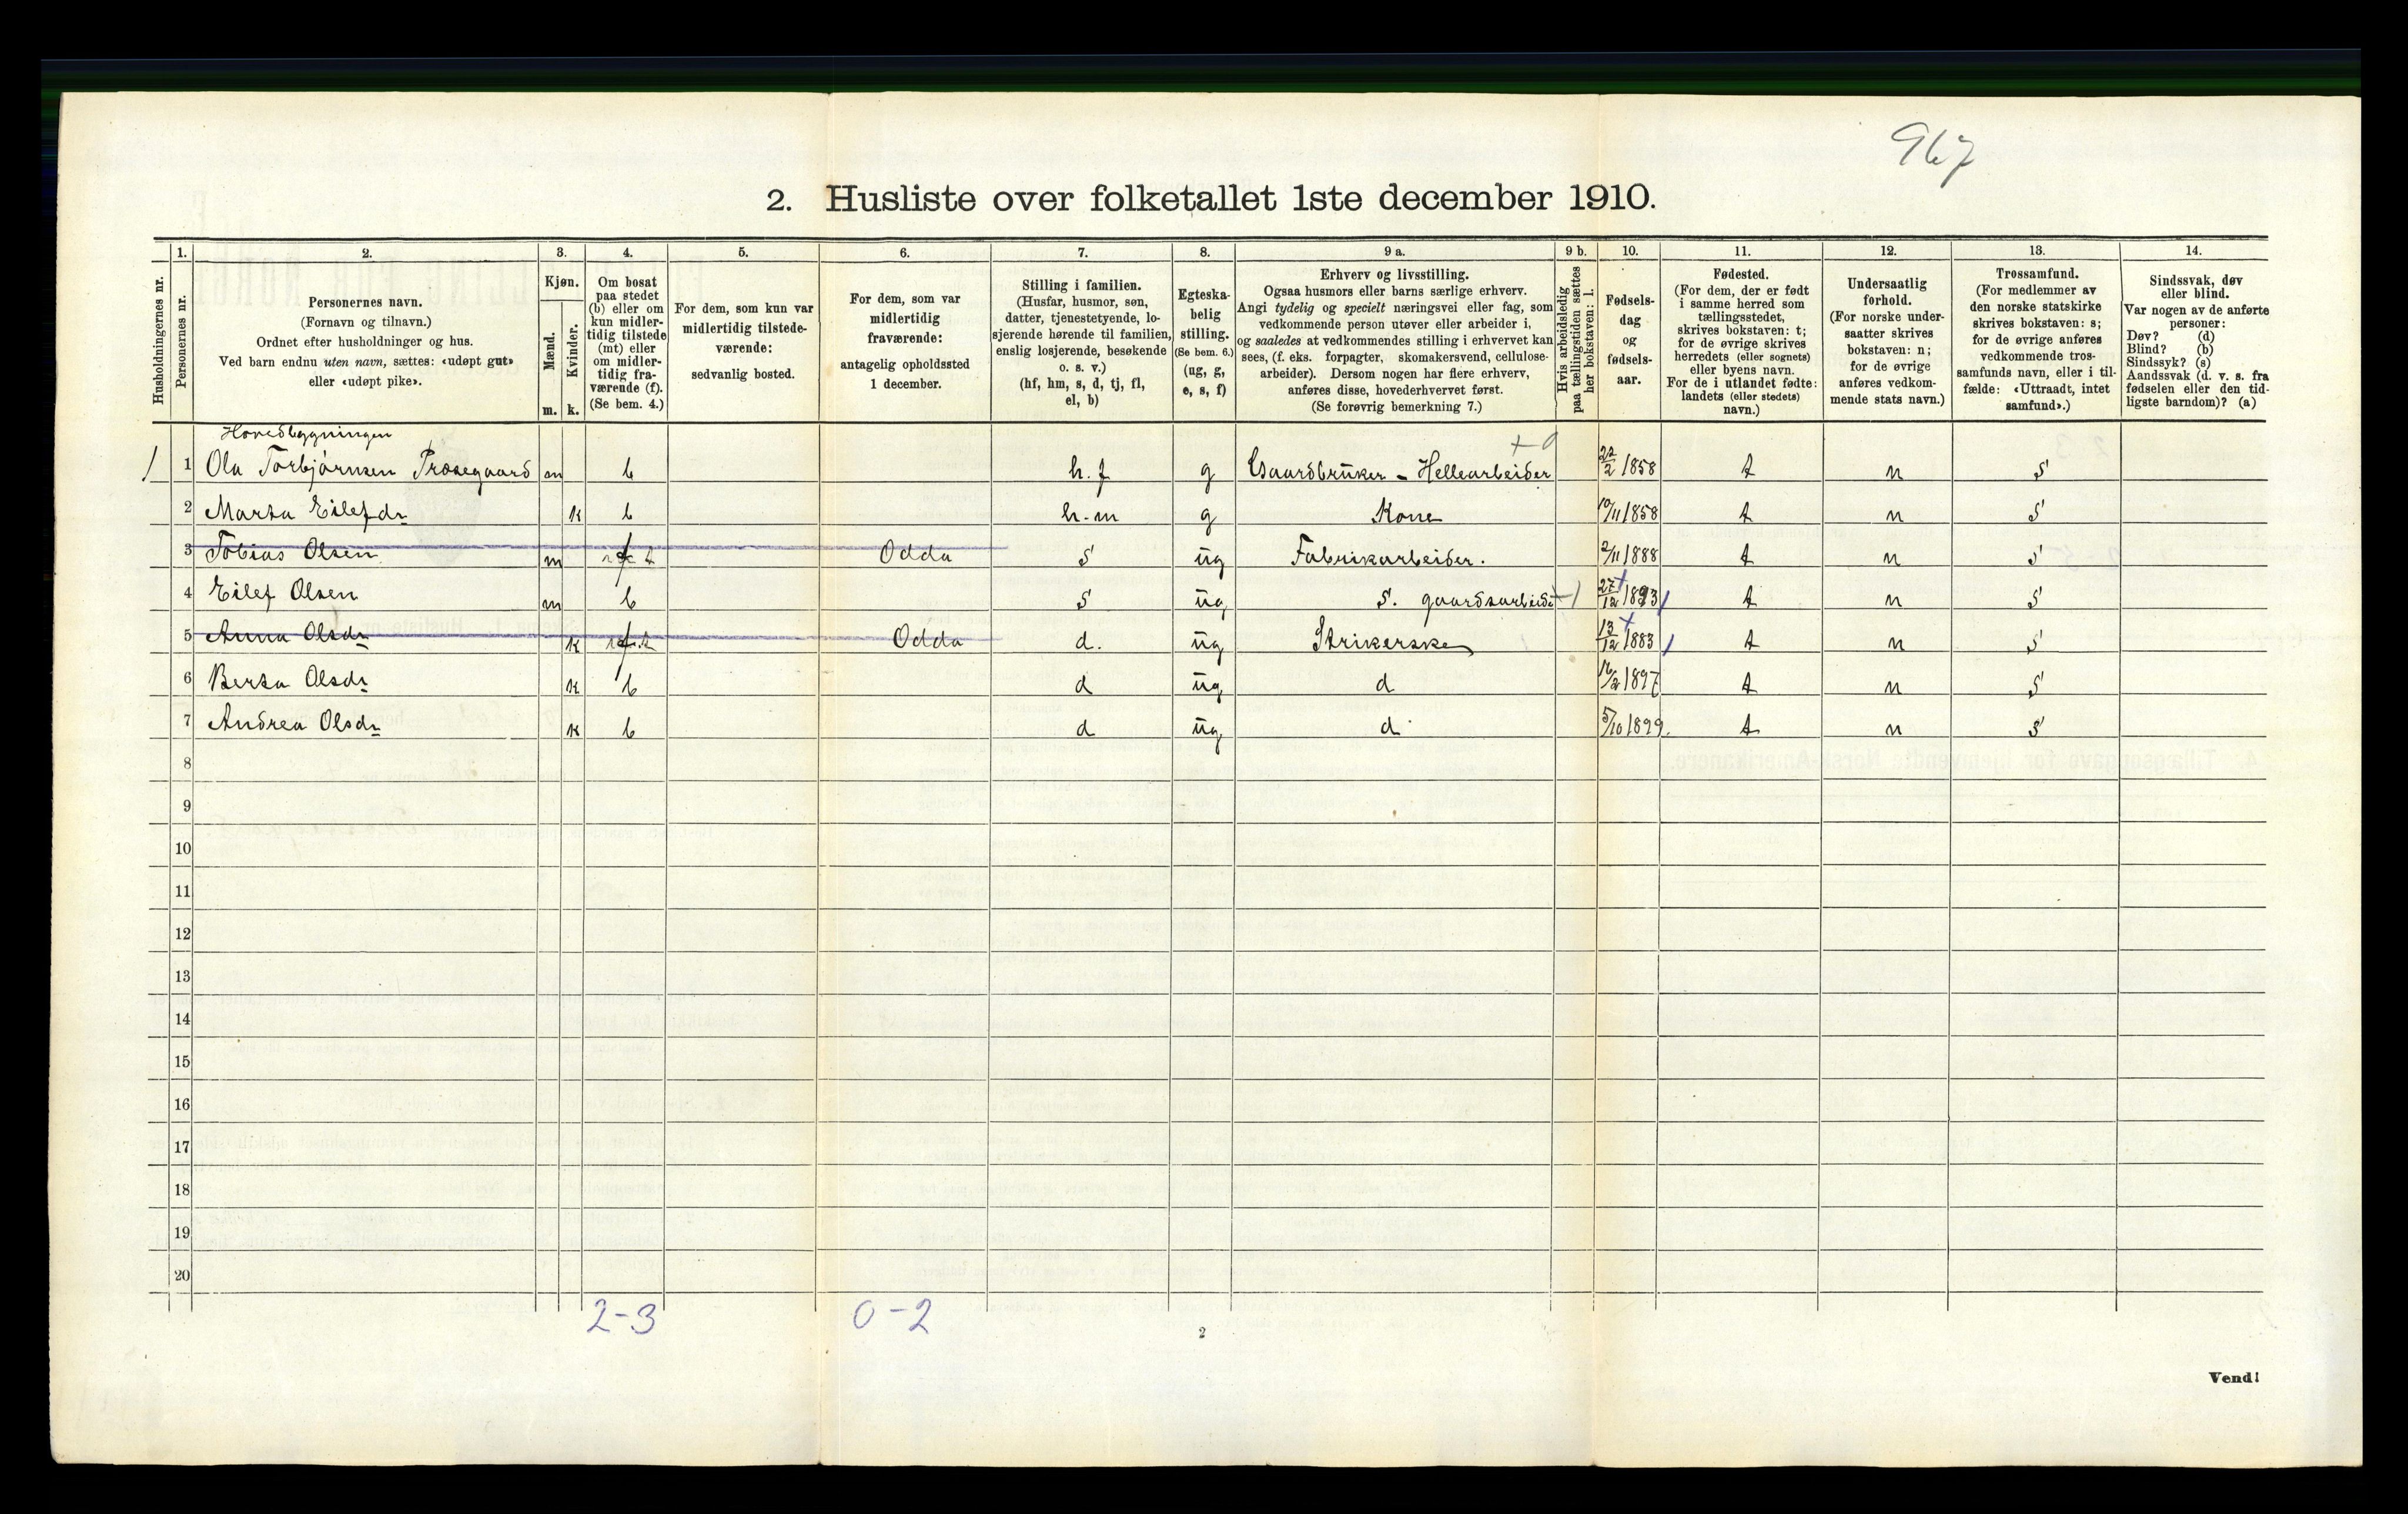 967
2. Husliste over folketallet 1ste december 1910.
Husholdningernes nr.
1.
Personernes nr.
2.
Personernes navn.
(Fornavn og tilnavn.)
Ordnet efter husholdninger og hus.
Ved barn endnu uten navn, sættes: «udøpt gut»
eller «udøpt pike».
3.
Kjøn.
Mænd.
Kvinder.
m. k.
4.
Om bosat
paa stedet
(b) eller om
kun midler-
tidig tilstede
(mt) eller
om midler-
tidig fra-
værende (f).
(Se bem. 4.)
5.
For dem, som kun var
midlertidig tilstede-
værende:
sedvanlig bosted.
6.
For dem, som var
midlertidig
fraværende:
antagelig opholdssted
1 december.
7.
Stilling i familien.
(Husfar, husmor, søn,
datter, tjenestetyende, lo-
sjerende hørende til familien,
enslig losjerende, besøkende
o. s. v.)
(hf, hm, s, d, tj, fl,
el, b)
8.
Egteska-
belig
stilling.
(Se bem. 6.)
(ug, g,
e, s, f)
9 a.
Erhverv og livsstilling.
Ogsaa husmors eller barns særlige erhverv.
Angi tydelig og specielt næringsvei eller fag, som
vedkommende person utøver eller arbeider i,
og saaledes at vedkommendes stilling i erhvervet kan
sees, (f. eks. forpagter, skomakersvend, cellulose-
arbeider). Dersom nogen har flere erhverv,
anføres disse, hovederhvervet først.
(Se forøvrig bemerkning 7.)
9 b.
Hvis arbeidsledig
paa tællingstiden sættes
her bokstaven: l.
10.
Fødsels-
dag
og
fødsels-
aar.
11.
Fødested.
(For dem, der er født
i samme herred som
tællingsstedet,
skrives bokstaven: t;
for de øvrige skrives
herredets (eller sognets)
eller byens navn.
For de i utlandet fødte:
landets (eller stedets)
navn.)
12.
Undersaatlig
forhold.
(For norske under-
saatter skrives
bokstaven: n;
for de øvrige
anføres vedkom-
mende stats navn.)
13.
Trossamfund.
(For medlemmer av
den norske statskirke
skrives bokstaven: s;
for de øvrige anføres
vedkommende tros-
samfunds navn, eller i til-
fælde: «Uttraadt, intet
samfund».)
14.
Sindssvak, døv
eller blind.
Var nogen av de anførte
personer:
Døv? (d)
Blind? (b)
Sindssyk? (s)
Aandssvak (d. v. s. fra
fødselen eller den tid-
ligste barndom)? (a)
Hovedbygningen
1 1 Ola Torbjørnsen Træsegaard m b h.f g Gaardbruker - Hellearbeider 22/2 1858 t n s
2 Marta Eilefdr k b h-m g Kone 10/11 1858 t n s
3 Tobias Olsen m f Odda s ug Fabrikarbeider. 2/11 1888 t n s
4 Eilef Olsen m b s ug s. gaardsarbeide 27/12 1893 t n s
5 Anna Olsdr k f Odda d. ug Strikerske 13/12 1883 t n s
6 Berta Olsdr k b d ug d 16/2 1897 t n s
7 Andrea Olsdr k b d ug d 5/10 1899. t n s
8
9
10
11
12
13
14
15
16
17
18
19
20
2-3 0-2
2
Vend!